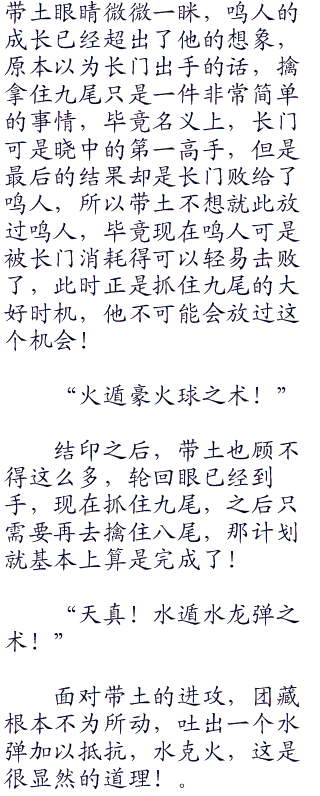 带土眼睛微微一眯，鸣人的
成长已经超出了他的想象，
原本以为长门出手的话，擒
拿住九尾只是一件非常简单
的事情，毕竟名义上，长门
可是晓中的第一高手，但是
最后的结果却是长门败给了
鸣人，所以带土不想就此放
过鸣人，毕竟现在鸣人可是
被长门消耗得可以轻易击败
了，此时正是抓住九尾的大
好时机，他不可能会放过这
个机会！
“火遁豪火球之术！”
结印之后，带土也顾不
得这么多，轮回眼已经到
手，现在抓住九尾，之后只
需要再去擒住八尾，那计划
就基本上算是完成了！
“天真！水遁水龙弹之
术！”
面对带土的进攻，团藏
根本不为所动，吐出一个水
弹加以抵抗，水克火，这是
很显然的道理！。